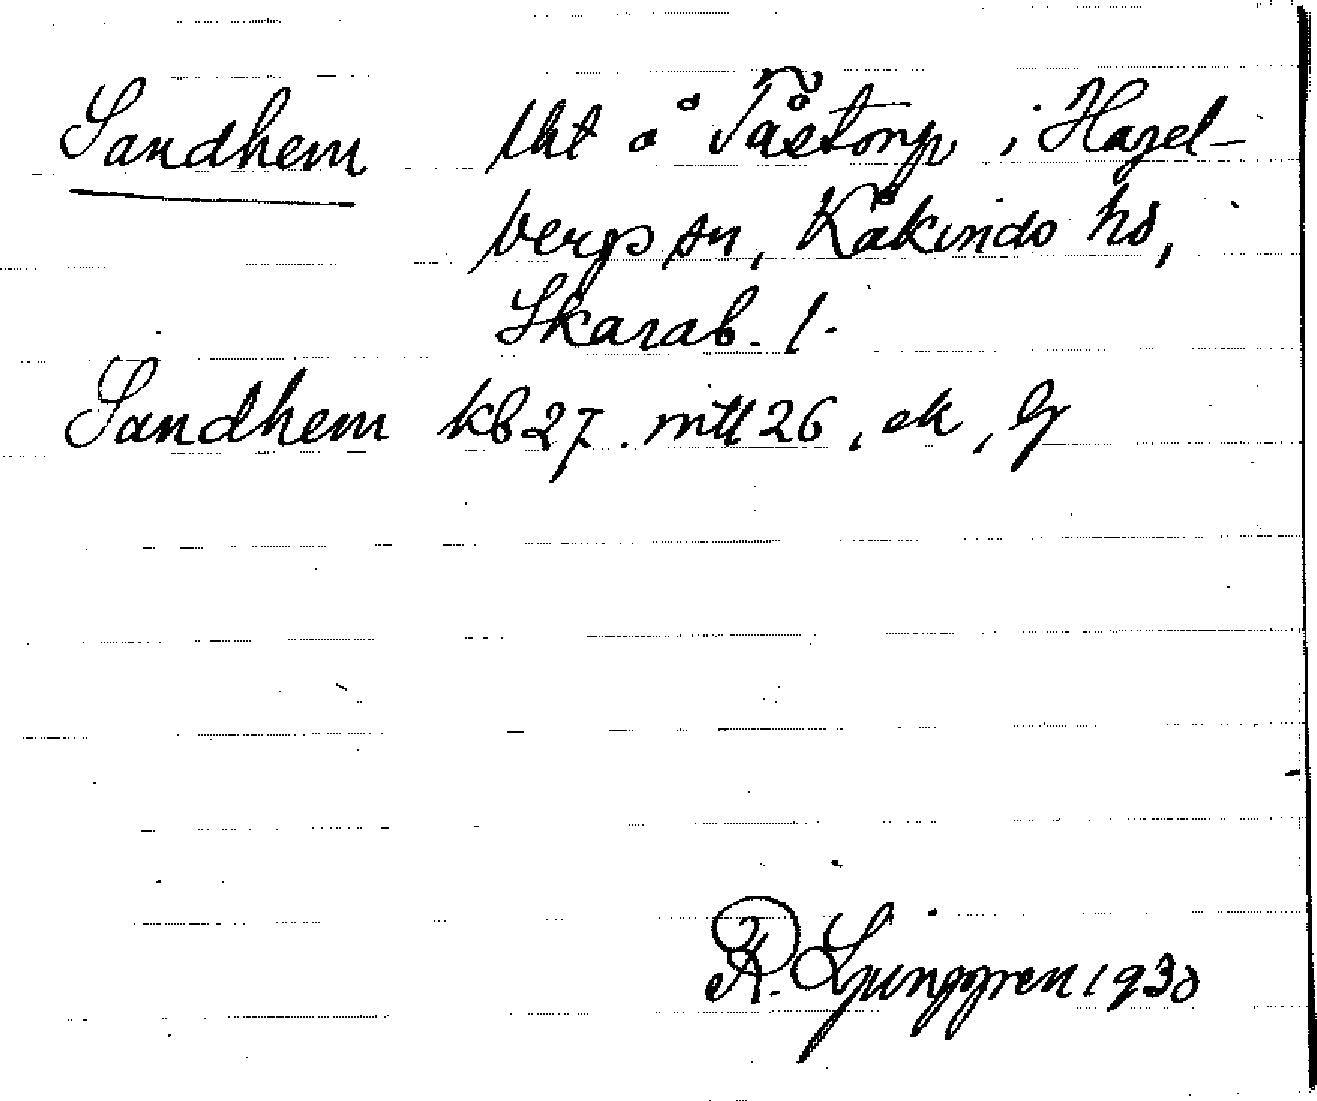 Sandhem lht å Tåstorp i Hagel-
bergs sn, Kåkinds hd,
Skarab. l.
Sandhem kb 27. mtl 26, ek,
R. Ljunggren 1930